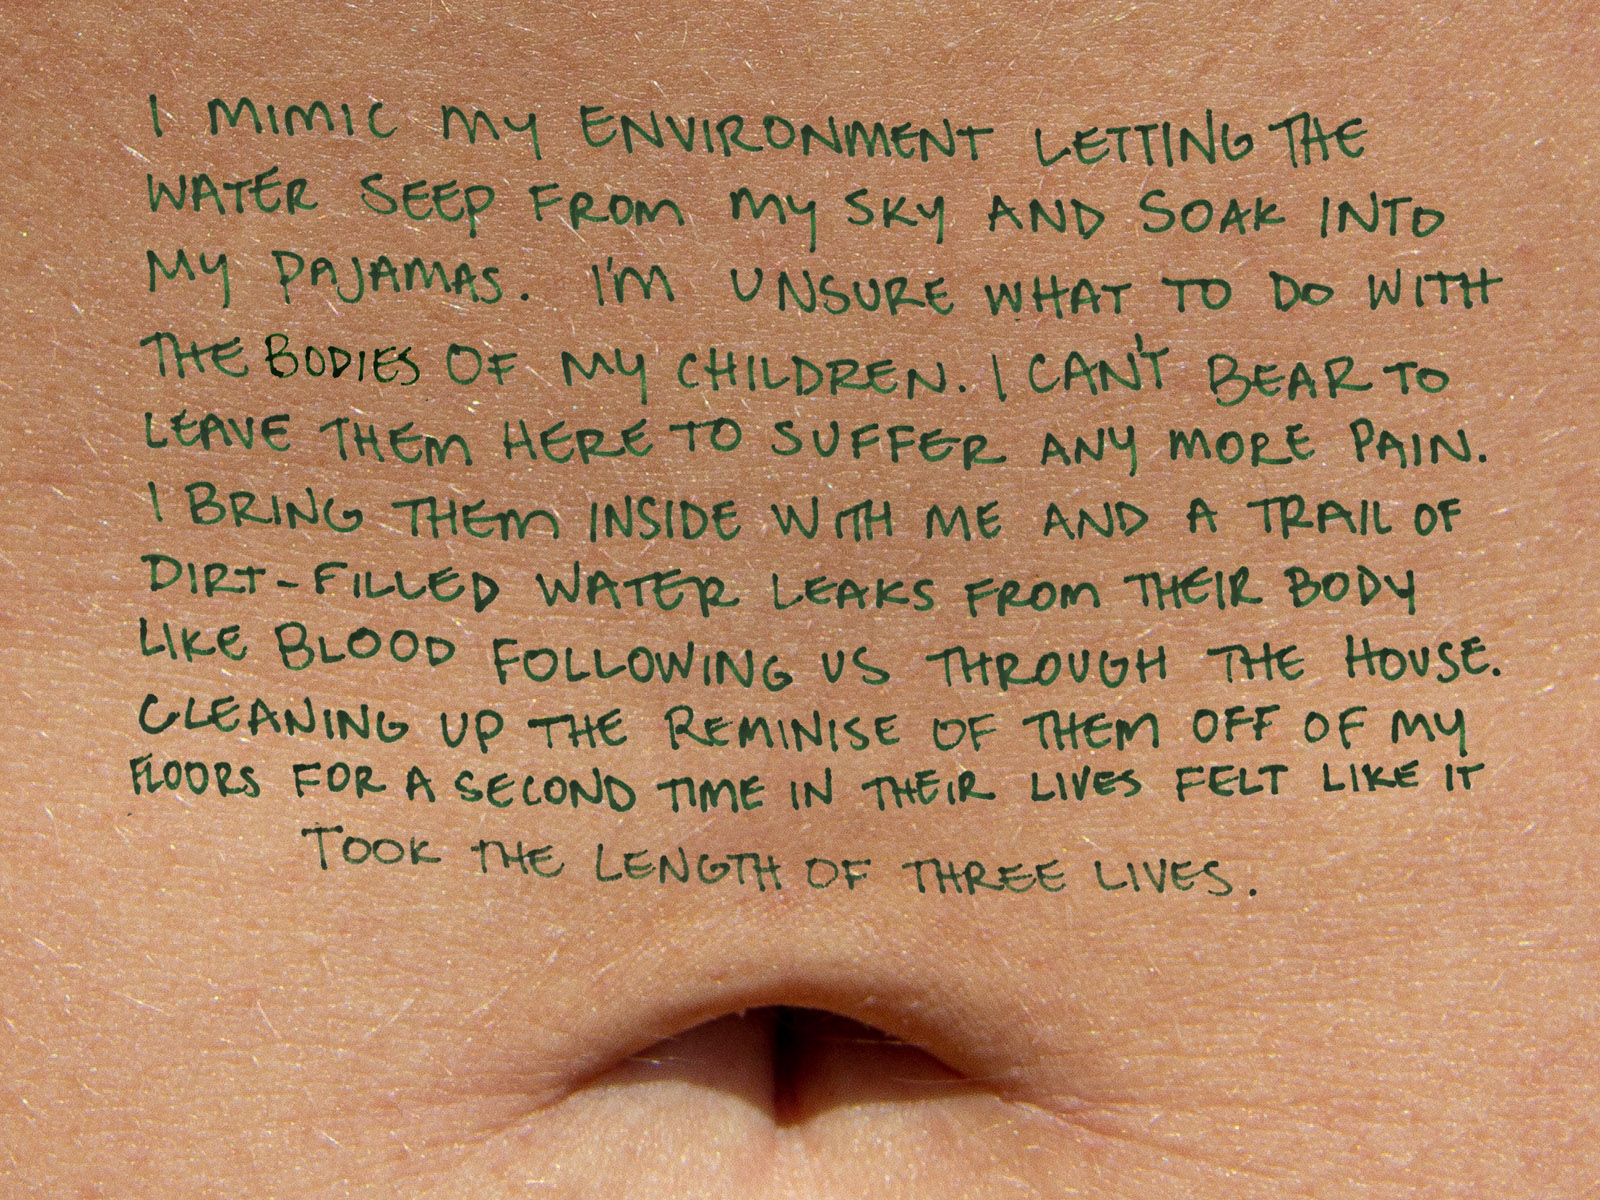 I MIMIC MY ENVIRONMENT LETTING THE
WATER SEEP FROM MY SKY AND SOAK INTO
MY PAJAMAS. I'M UNSURE WHAT TO DO WITH
THE BODIES OF MY CHILDREN. I CAN'T BEAR TO
LEAVE THEM HERE TO SUFFER ANY MORE PAIN.
I BRING THEM INSIDE WITH ME AND A TRAIL OF
DIRT-FILLED WATER LEAKS FROM THEIR BODY
LIKE BLOOD FOLLOWING US THROUGH THE HOUSE.
CLEANING UP THE REMINISE OF THEM OFF OF MY
FLOORS FOR A SECOND TIME IN THEIR LIVES FELT LIKE IT
TOOK THE LENGTH OF THREE LIVES.